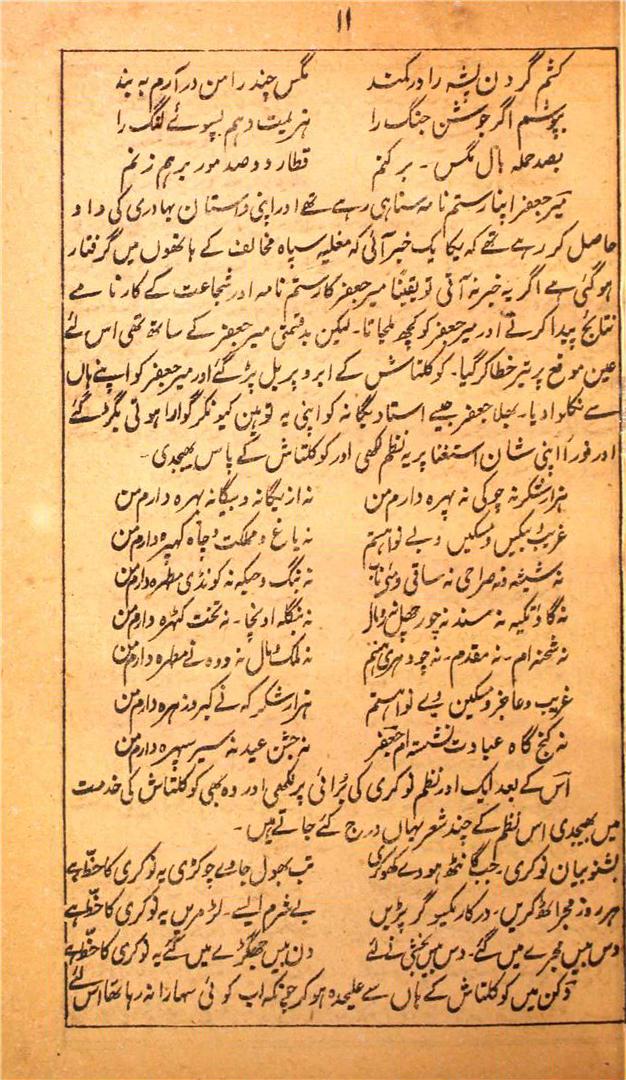 ۱۱
کشم گردن پشہ را در کمند مگس چند را من در آرم بہ بند
بپوشم اگر جوشن جنگ را ہزیمت دہم بسوئے لنگ را
بصد حملہ بال مگس ۔ بر کنم قطار دو صد مور برہم زنم
میر جعفر اپنا رستم نامہ سنا ہی رہے تھے اور اپنی داستان بہادری کی داد
حاصل کر رہے تھے کہ یکایک خبر آئی کہ مغلیہ سپاہ مخالف کے ہاتھوں میں گرفتار
ہوگئی ہے اگر یہ خبر نہ آتی تو یقیناً میر جعفر کا رستم نامہ اور شجاعت کے کارنامے
نتائج پیدا کرتے اور میر جعفر کو کچھ ملجاتا۔ لیکن بدقسمتی میر جعفر کے ساتھ تھی اس لئے
عین موقع پر تیر خطا کر گیا۔ کوکلتاش کے ابرو پر بل پڑ گئے اور میر جعفر کو اپنے ہاں
سے نکلوا دیا۔ بھلا جعفر جیسے استاد یگانہ کو اپنی یہ توہین کیونکر گوارا ہوتی بگڑ گئے
اور فوراً اپنی شان استغنا پر یہ نظم لکھی اور کوکلتاش کے پاس بھیجدی۔
ہزار شکر نہ چوکی نہ پہرہ دارم من نہ از یگانہ و بیگانہ بہرہ دارم من
غریب و بیکس و مسکین و بے نوا ہستم نہ باغ و مملکت و جاہ کہرہ دارم من
نہ شیشہ و نہ صراحی نہ ساقی و نے نہ بنگ و حبکہ نہ کونڈی مطہرہ دارم من
نہ گاؤ تکیہ نہ مسند نہ چورچھل نہ رومال نہ بنگلہ اونچا۔ نہ تخت کٹہرہ دارم من
نہ شحنہ ام۔ نہ مقدم۔ نہ چودہری نہ ملک و مال نہ دہ نے مطہرہ دارم من
غریب و عاجز و مسکین و بے نوا ہستم ہزار شکر کہ نے کبر و زہرہ دارم من
نہ کنج گاہ عبادت نشستہ ام جعفر نہ جشن عید نہ سیر سپہرہ دارم من
اس کے بعد ایک اور نظم نوکری کی برائی پر لکھی اور وہ بھی کوکلتاش کی خدمت
میں بھیجدی اس نظم کے چند شعر یہاں درج کئے جاتے ہیں۔
بشنو بیان نوکری۔ جب گانٹھ ہووے کھوکری تب بھول جاوے چوکڑی یہ نوکری کا حظ ہے
ہر روز مجرا اٹھ کریں۔ درکار کمیو گر پڑیں بے شرم ایسے۔ لڑ مریں یہ نوکری کا حظ ہے
دس بیس مجرے میں گئے۔ دس بیس بخشی نے لئے دن بیس جھگڑے میں گئے یہ نوکری کا حظ ہے
دکن میں کوکلتاش کے ہاں سے علیحدہ ہو کر چونکہ اب کوئی سہارا نہ رہا تھا اس لئے